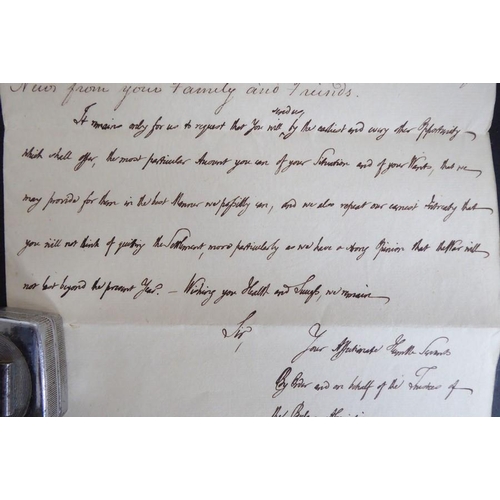 News from your Family and Friends.
send us
It remains only for us to request that You will by the earliest and every other Opportunity
which shall offer, the most particular Amount you can of your Situation and of your Wants, that we
may provide for them in the best Manner we possibly can; and we also repeat our earnest Intreaty that
you will not think of quiting the Settlement, more particularly as we have a strong Opinion that the War will
not last beyond the present Year. — Wishing you Health and Success, we remain
Sir,
Your Affectionate Humble Servants
By Order and on behalf of the Trustees of